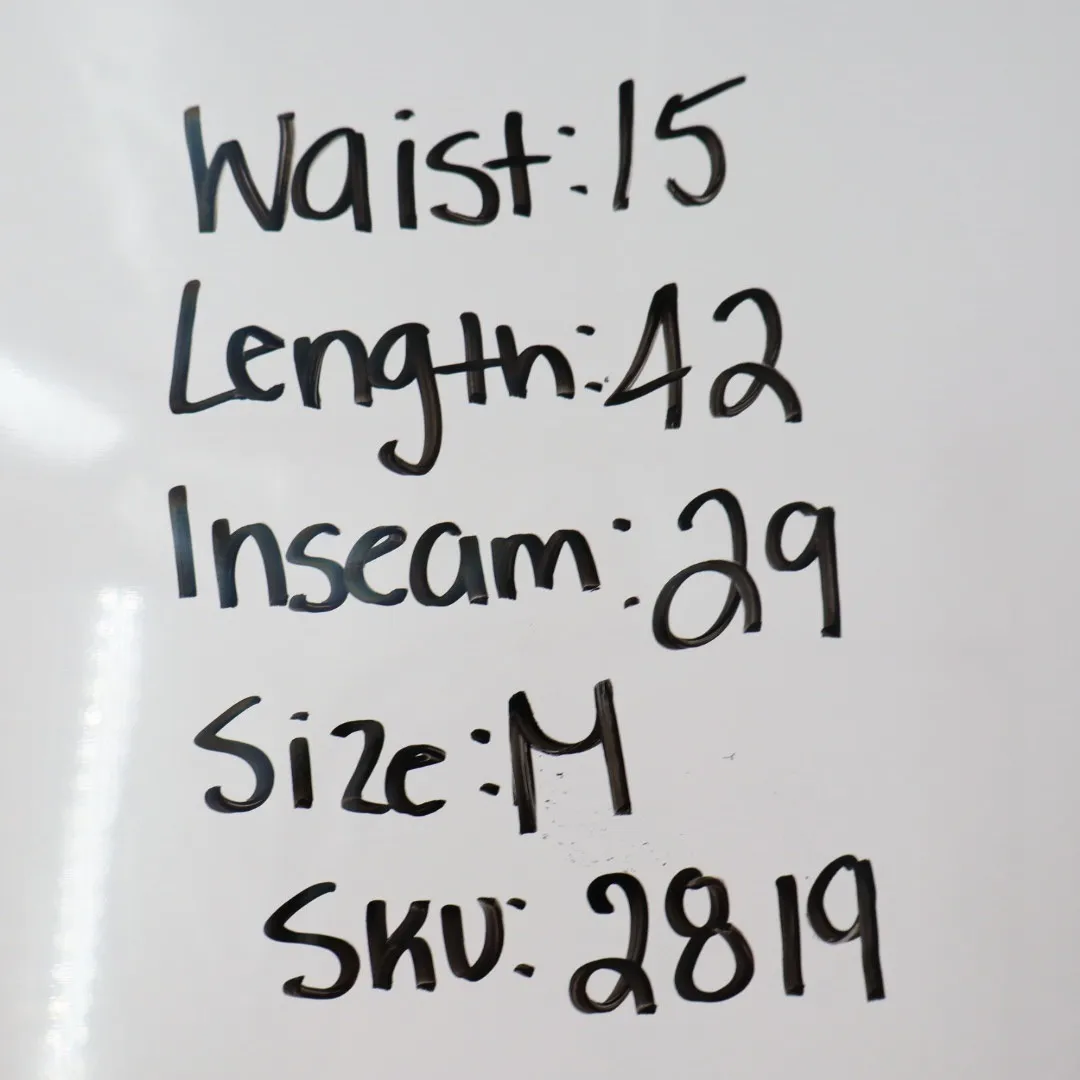 Waist: 15
Length: 42
Inseam: 29
Size: M
SKU: 2819